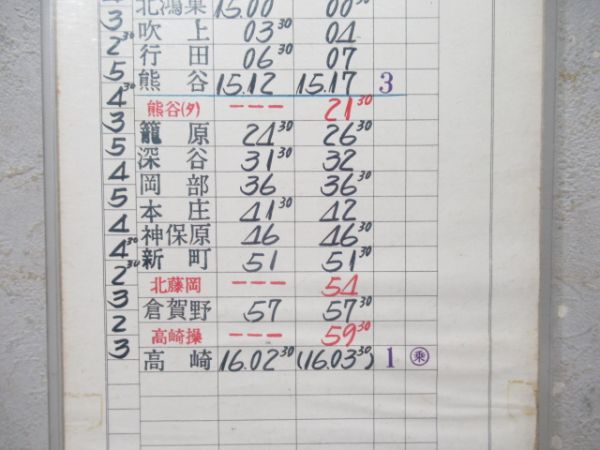 北鴻巣 15.00 00 30
3 吹上 03 30 04
2 30 行田 06 30 07
5 熊谷 15.12 15.17 3
4 30 熊谷(タ) --- 21 30
3 籠原 24 30 26 30
5 深谷 31 30 32
4 岡部 36 36 30
5 本庄 41 30 42
4 神保原 46 46 30
4 30 新町 51 51 30
2 30 北藤岡 --- 54
3 倉賀野 57 57 30
2 高崎操 --- 59 30
3 高崎 16.02 30 (16.03 30) 1 乗